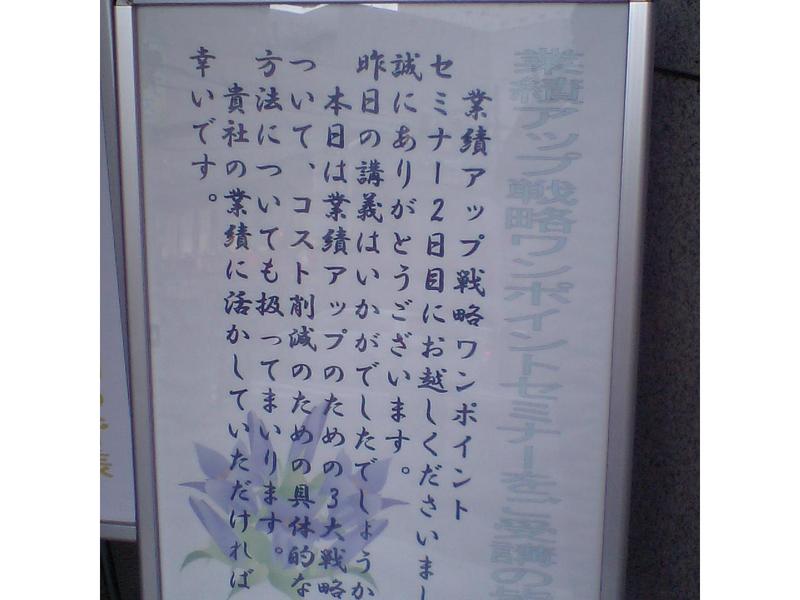 業績アップ戦略ワンポイントセミナーをご受講の皆
業績アップ戦略ワンポイント
セミナー2日目にお越しくださいまし
誠にありがとうございます。
昨日の講義はいかがでしたでしょうか
本日は業績アップのための3大戦略
ついて、コスト削減のための具体的な
方法についても扱ってまいります。
貴社の業績に活かしていただければ
幸いです。